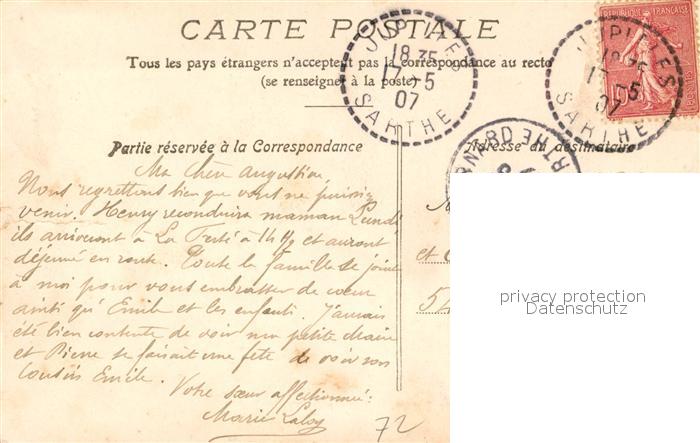 CARTE POSTALE
Tous les pays étrangers n'acceptent pas la correspondance au recto
(se renseigner à la poste)
JUPILLES
18 35
17 -5
07
SARTHE
RÉPUBLIQUE FRANÇAISE
10
JUPILLES
18 35
17 -5
07
SARTHE
Partie réservée à la Correspondance
Adresse du destinataire
RNARD
RTHE
Ma Chère Augustine,
Nous regrettons bien que vous ne puissiez
venir. Henry reconduira maman Lundi
ils arriveront à La Ferté à 14 h et auront
déjeuné en route. Toute la famille se joint
à moi pour vous embrasser de cœur
ainsi qu'Emile et les enfants. J'aurais
été bien contente de voir ma petite Marie
et Pierre se faisait une fête de voir son
Cousin Emile.
Votre sœur affectionnée:
Marie
72
et
privacy protection
Datenschutz